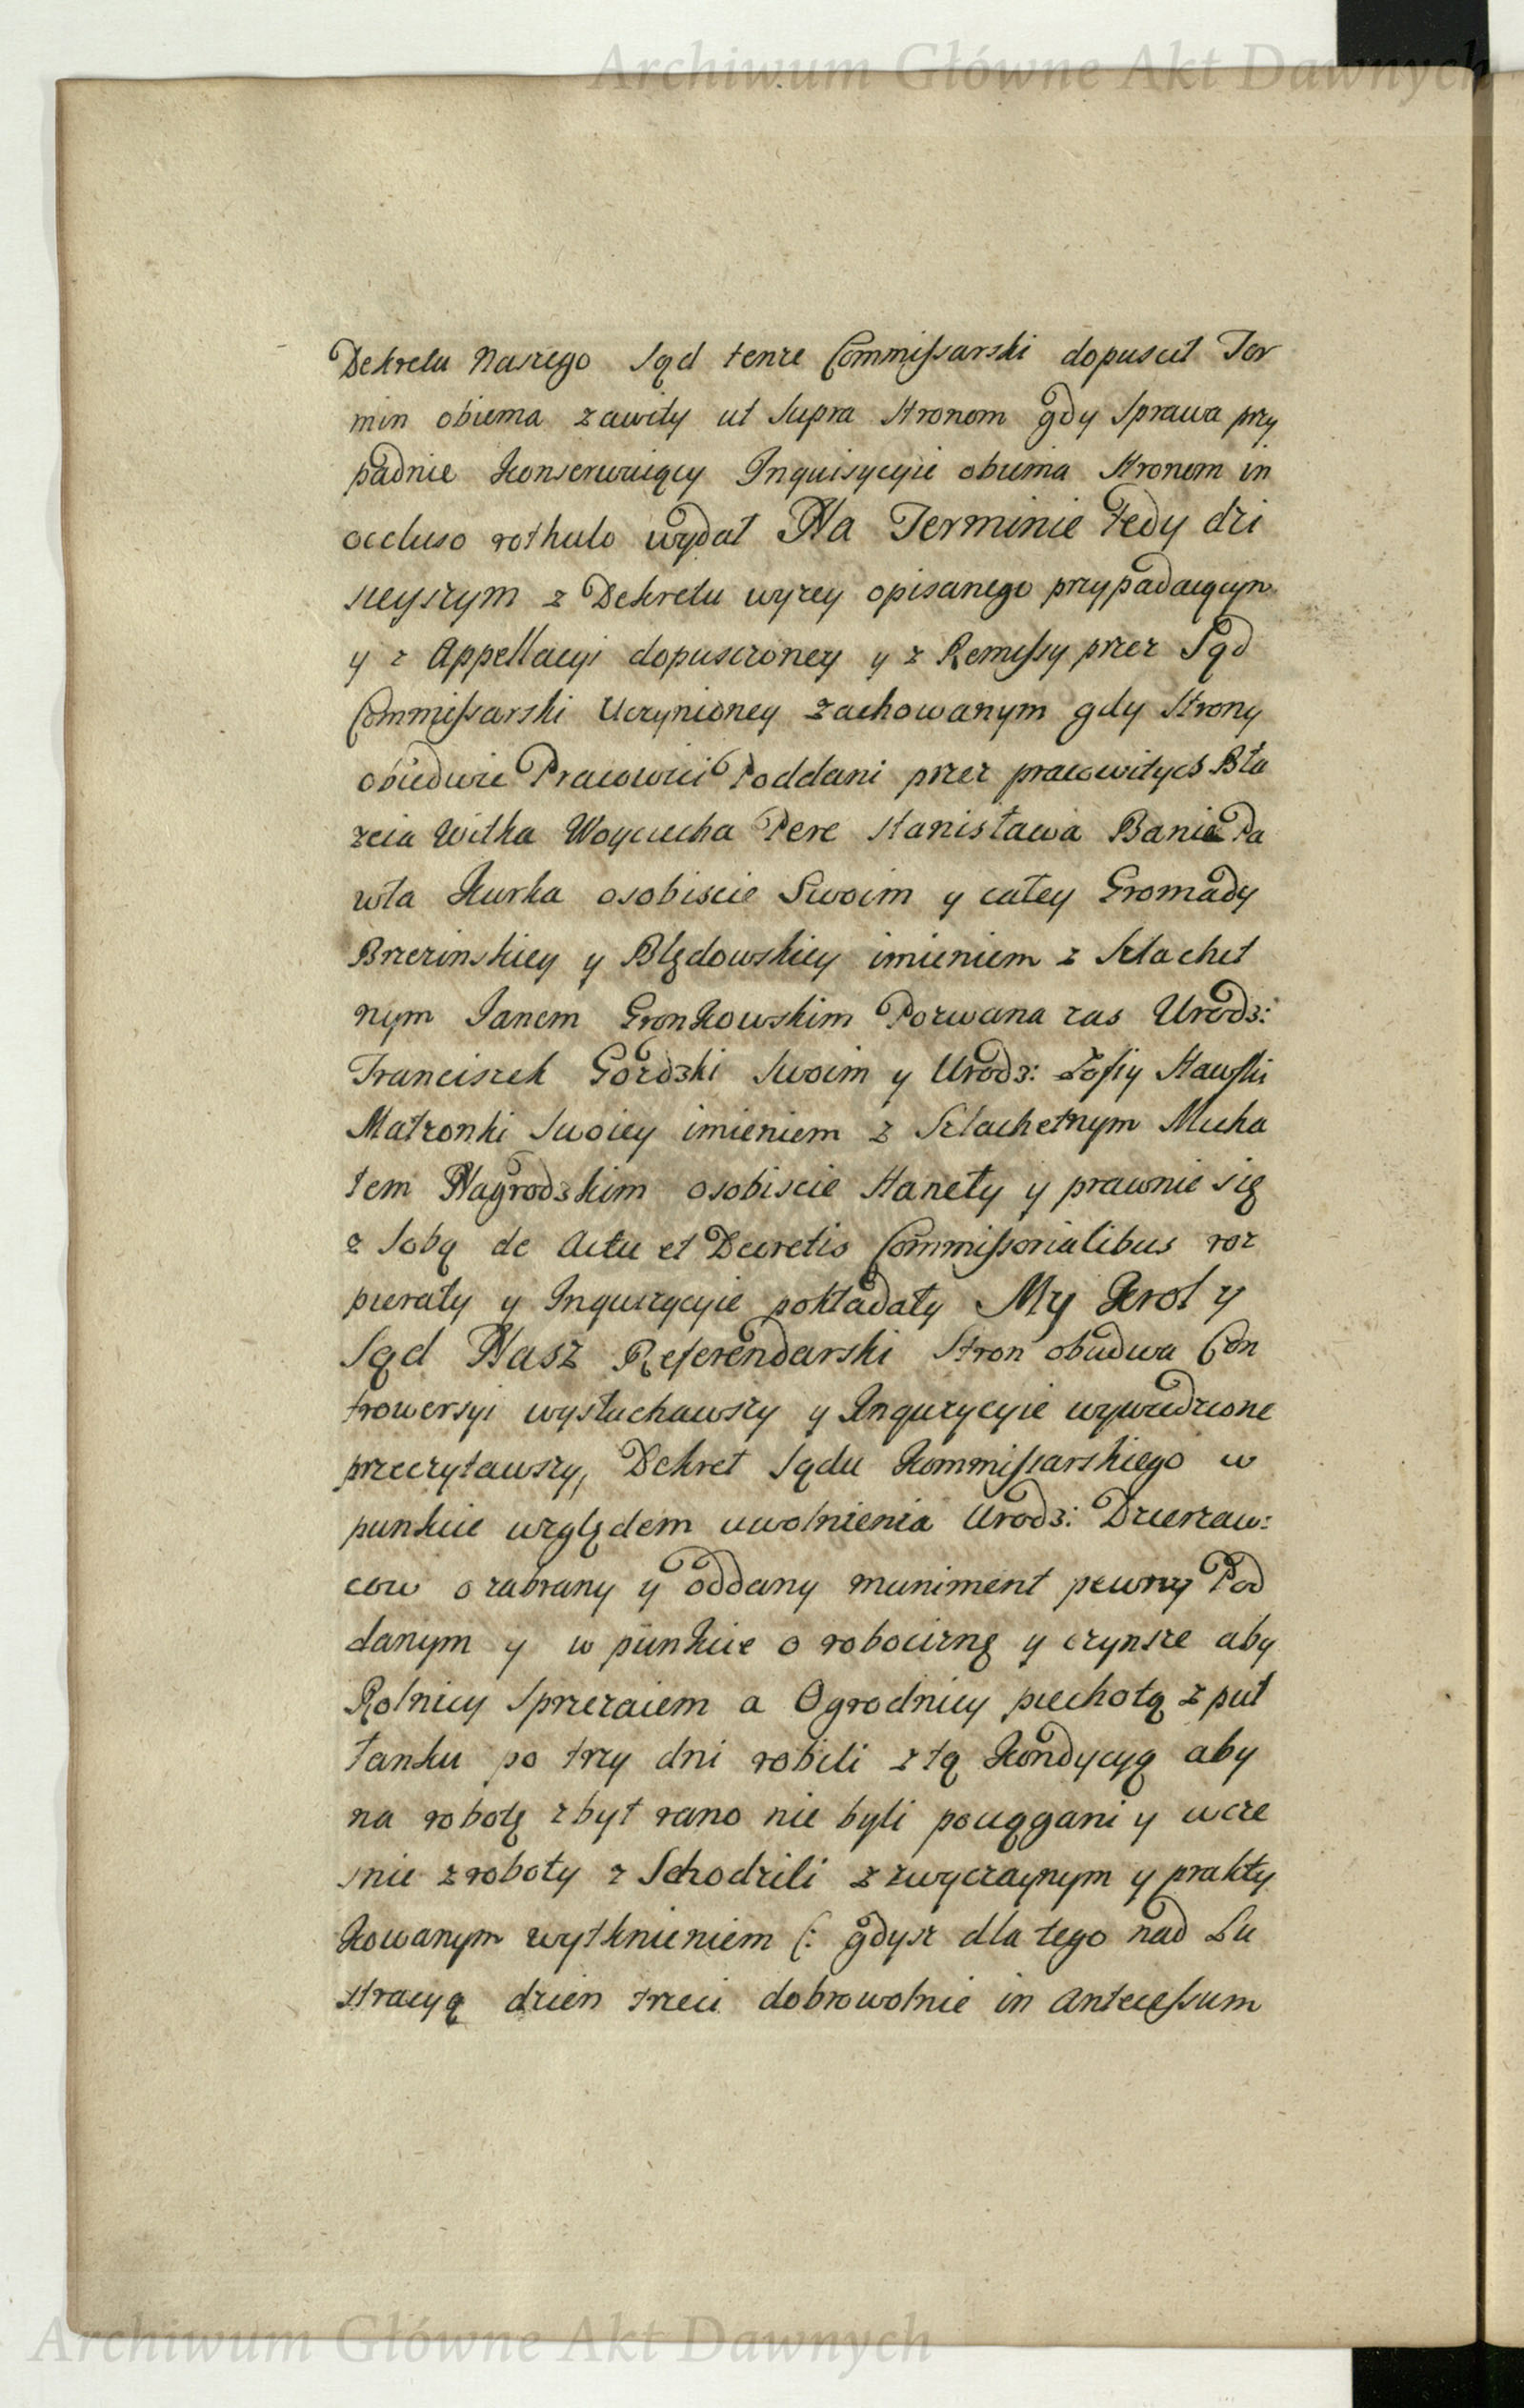 Archiwum Główne Akt Dawnych
Dekretu Naszego Sąd tenże Commissarski dopuscił Ter
min obiema zawity ut supra Stronom gdy Sprawa przy
padnie konserwuiący Inquisycyie obiema Stronom in
occluso rothulo wydał Na Terminie tedy dzi
sieyszym z Dekretu wyżey opisanego przypadaiącym
y z Appellacyi dopuszczoney y z Remissy przez Sąd
Commissarski Uczynioney zachowanym gdy Strony
obiedwie Pracowici Poddani przez pracowitych Bła
żeia Witka Woyciecha Pere Stanisława Bania Pa
wła Kurka osobiscie Swoim y całey Gromady
Brzezinskiey y Blędowskiey imieniem z Szlachet
nym Janem Gronkowskim Pozwana zas Urodz:
Franciszek Gordzki Swoim y Urodz: Zofiy Stawski
Małżonki Swoiey imieniem z Szlachetnym Micha
łem Nagrodzkim osobiscie Stanęły y prawnie się
z Sobą de Actu et Decretis Commissorialibus roz
pierały y Inquizycyie pokładały My Krol y
Sąd Nasz Referendarski Stron obudwu Con
trowersyi wysłuchawszy y Inquizycyie wywiedzione
przeczytawszy, Dekret Sądu Kommissarskiego w
punkcie względem uwolnienia Urodz: Dzierzaw:
cow o zabrany y oddany muniment pewny Pod
danym y w punkcie o robociznę y czynsze aby
Rolnicy Sprzężaiem a Ogrodnicy piechotą z puł
łanku po trzy dni robili z tą kondycyą aby
na robotę zbyt rano nie byli pociągani y wcze
snie z roboty z Schodzili z zwyczaynym y prakty
kowanym wytknieniem (: gdysz dla tego nad Lu
stracyą dzien trzeci dobrowolnie in antecessum
Archiwum Główne Akt Dawnych